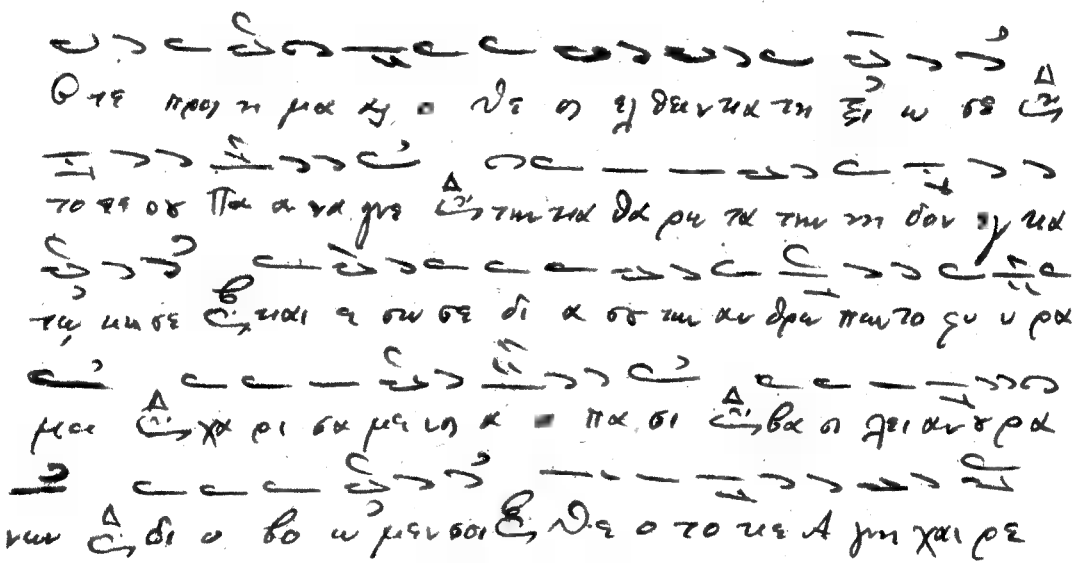 Ο τε προς η μας θε ος ελ θειν κα τη ξι ω σε
Πα α να γνε την κα θα ρω τα την νη δυν κα
τω κη σε και ε σω σε δι α σου των αν θρω πων το φυ υ ρα
μα χα ρι σα με νος α πα σι βα σι λει αν ου ρα
νων δι ο βο ω μεν σοι Θε ο το κε Α γνη χαι ρε